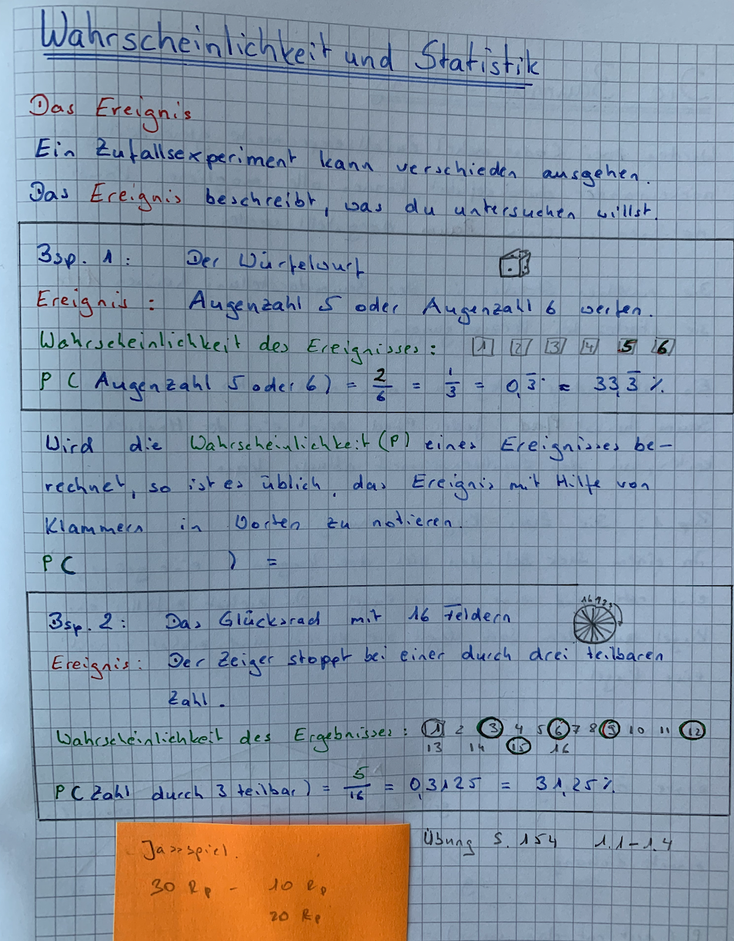 Wahrscheinlichkeit und Statistik
Das Ereignis
Ein Zufallsexperiment kann verschieden ausgehen.
Das Ereignis beschreibt, was du untersuchen willst.
Bsp. 1: Der Würfelwurf
Ereignis: Augenzahl 5 oder Augenzahl 6 werfen.
Wahrscheinlichkeit des Ereignisses: 1 2 3 4 5 6
P (Augenzahl 5 oder 6) = 2/6 = 1/3 = 0,3̅ = 33,3̅ %
Wird die Wahrscheinlichkeit (P) eines Ereignisses be-
rechnet, so ist es üblich, das Ereignis mit Hilfe von
Klammern in Worten zu notieren.
P ( ) =
Bsp. 2: Das Glücksrad mit 16 Feldern
16 1 2 3
Ereignis: Der Zeiger stoppt bei einer durch drei teilbaren
Zahl.
Wahrscheinlichkeit des Ergebnisses: 1 2 3 4 5 6 7 8 9 10 11 12
13 14 15 16
P (Zahl durch 3 teilbar) = 5/16 = 0,3125 = 31,25 %
Übung S. 154 1.1-1.4
Jassspiel.
30 Rp - 10 Rp
20 Rp